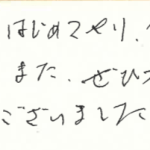 はじめてやり、
また、ぜひ
ございました